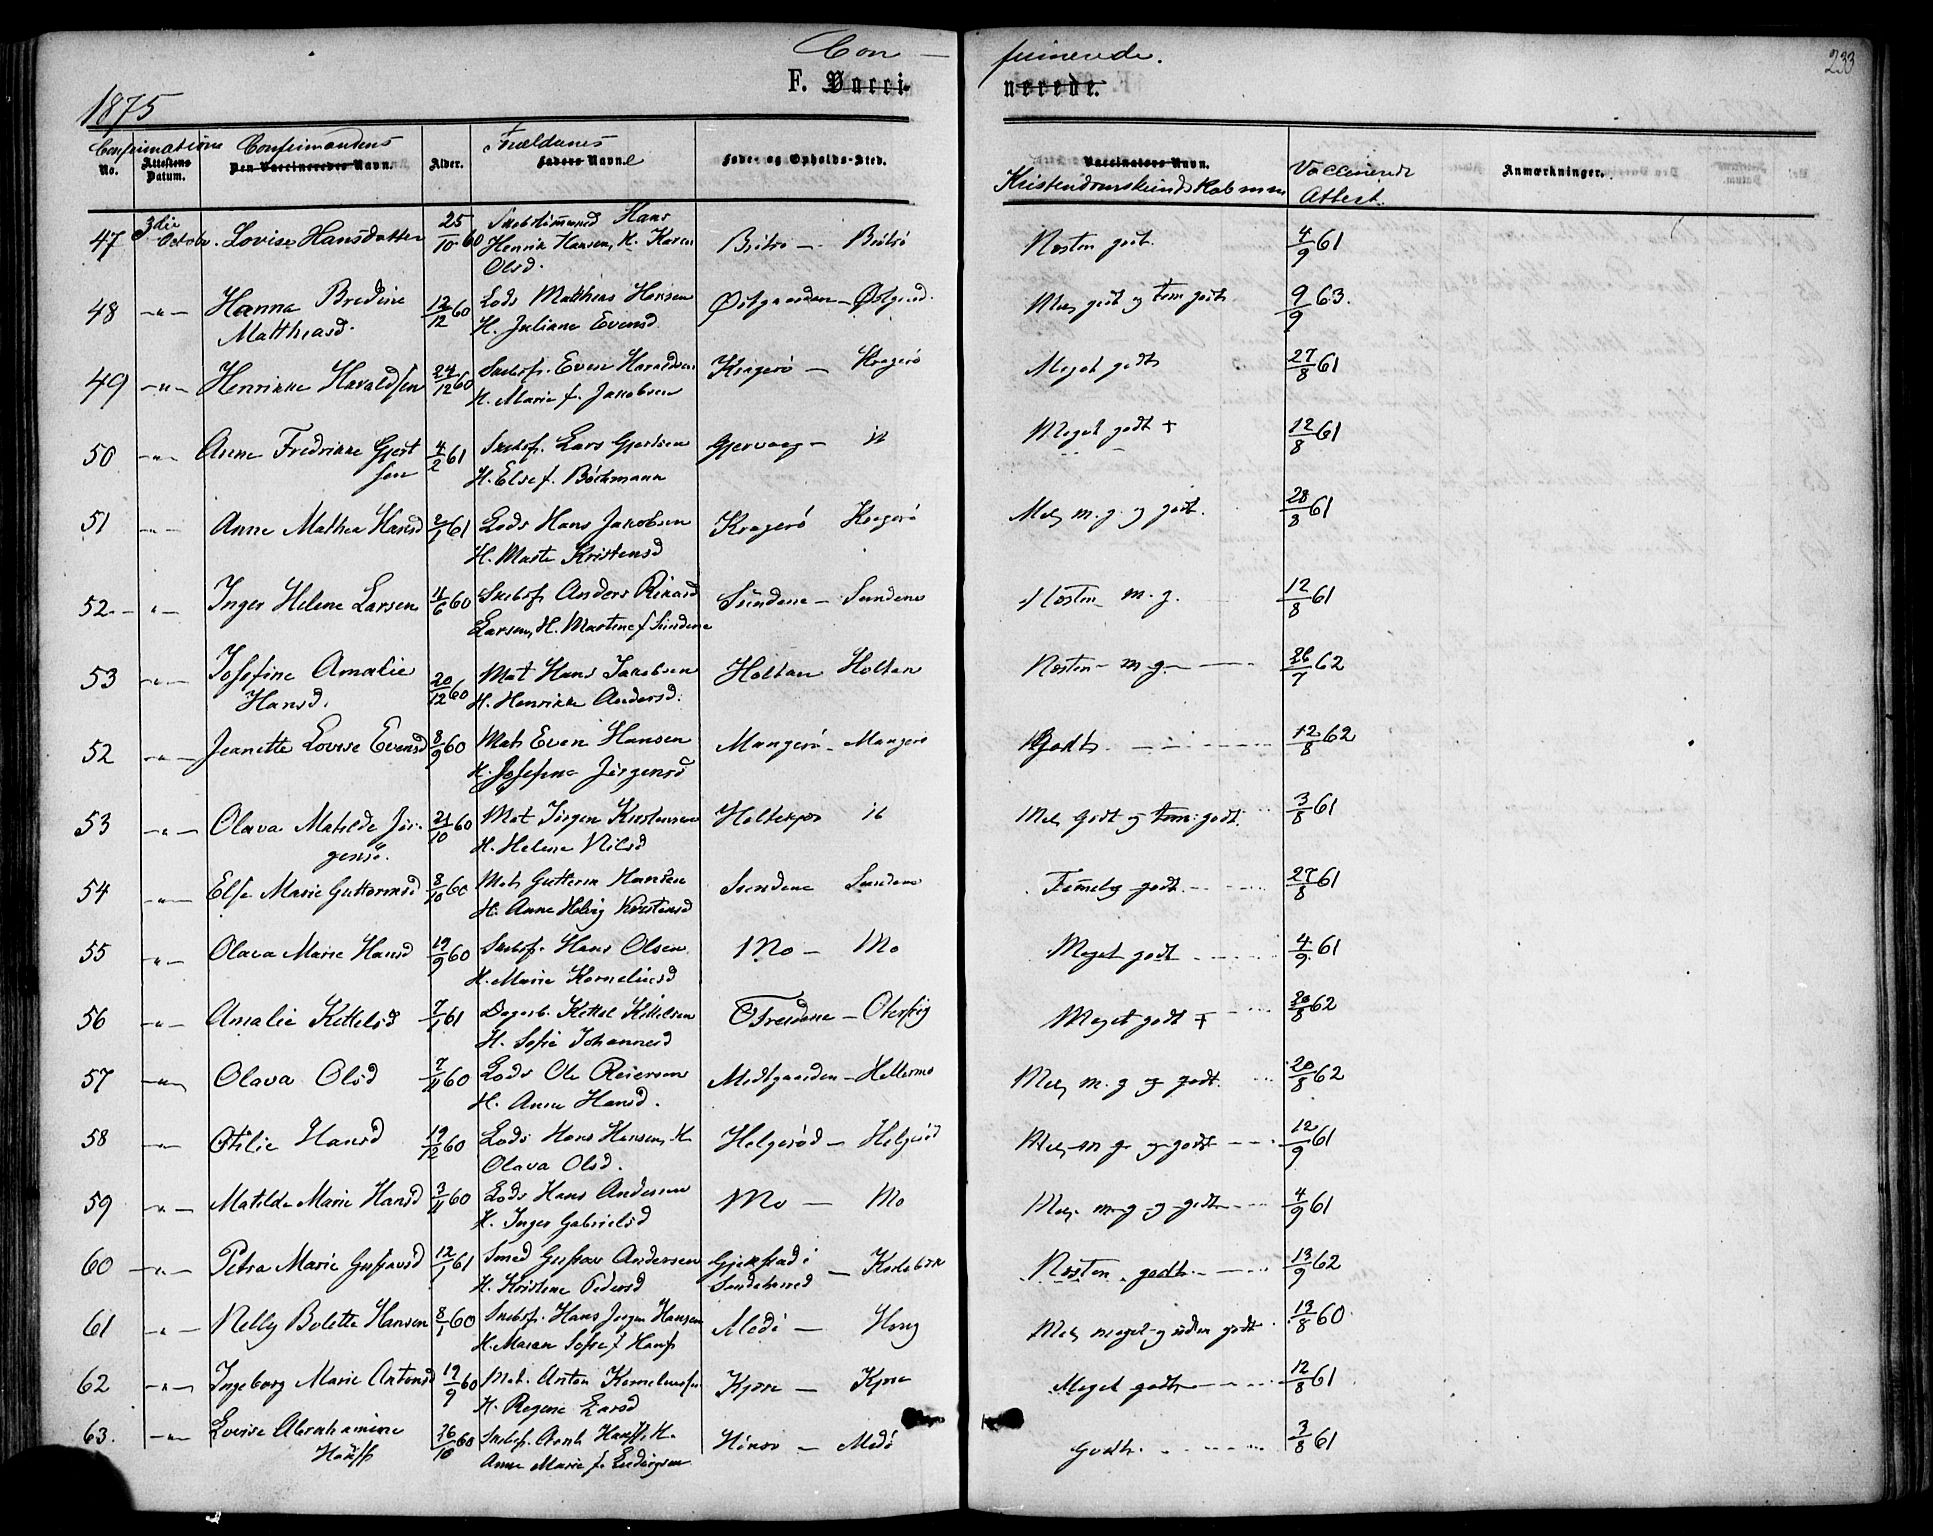 Con — firmerede. 233
F. Vacci- nerede.
1875
Confirmations Confirmandens Forældrenes
No. Attestens Datum. Den Vaccineredes Navn. Alder. Faders Navn. Føde- og Opholds-Sted. Vaccinators Navn. Kristendomskundskab Vaccinerede Attest. Anmærkninger.
47 3die Octobr. Lovise Hansdatter 25/10 60 Hans
Henrik Hansen, H. Karen
Olsd. Nesten godt. 4/9 61
48 -"- Hanna Bredine 12/12 60 Lods Matthias Hansen Østgaarden - Østgaard. Meg godt og tem godt 9/9 63.
Matthiasd. H. Juliane Evensd.
49 -"- Henrikke Haraldsen 24/12 60 Skibsf. Even Haraldsen Kragerø - Kragerø Meget godt 27/8 61
H. Marie f. Jacobsen
50 -"- Anne Fredrikke Gjert 4/2 61 Skibsf. Lars Gjertsen Gjervaag - it Meget godt + 12/8 61
sen H. Else f. Böckmann
51 -"- Anne Mathea Hansd 61 Lods Hans Jacobsen Kragerø Kragerø Mel. m. g. og godt. 28/8 61
H. Marte Kristensd
52. -"- Inger Helene Larsen 60 Skibsf. Anders Rikard Sundene - Sundene Nesten m. g. 12/8 61
Larsen, H. Martine f. Sundene
53 -"- Josefine Amalie 20/12 60 Mat Hans Jacobsen Holtan Holtan Nesten - m. g. 26/7 62
Hansd. H. Henrikke Andersd.
52 -"- Jeanette Lovise Evensd 8/9 60 Mat. Even Hansen Mangerö - Mangerö Godt. 12/8 62
H. Josefine Jörgensd
53 -"- Olava Matilde Jör- 21/10 60 Mat Jörgen Kristensen it Mel. godt og tem: godt. 3/8 61
gensd. H. Helene Nilsd
54 -"- Else Marie Guttormsd 8/10 60 Mat. Guttorm Hansen Sundene Sundene Temelig godt. 27/8 61
H. Anne Helvig Kristensd
55 -"- Olava Marie Hansd 19/9 60 Skibsf. Hans Olsen Mo - Mo Meget godt 4/9 61
H. Marie Korneliusd
56 -"- Amalie Kittelsd 7/1 61 Dagarb. Kettel Kittelsen Meget godt + 20/8 62
H. Sofie Johannesd
57 -"- Olava Olsd 7/11 60 Lods Ole Reiersen Midtgaarden - Hellermo Mel. m. g og godt. 20/8 62
H. Anne Hansd.
58 -"- Otilie Hansd 19/12 60 Lods Hans Hansen, H. Helgeröd - Helgeröd Mel. m g og godt 12/9 61
Olava Olsd.
59 -"- Matilde Marie Hansd 3/11 60 Lods Hans Andersen Mo - Mo Mel. m g og godt 4/9 61
H. Inger Gabrielsd
60 -"- Petra Marie Gustavsd 12/1 61 Smed Gustav Andersen Gjekstad i - Nesten godt. 13/9 62
H. Kristine Pedersd Sandeherred
61 -"- Nelly Bolette Hansen 8/1 60 Skibsf. Hans Jörgen Hansen - Mel. meget og uden godt. 13/8 60.
H. Maren Sofie f.
62 -"- Ingeborg Marie Antonsd 19/9 60 Mat. Anton Korneliussen Kjøn - Kjøn Meget godt 12/8 61
H. Regine Larsd
63. -"- Lovise Abrahamine 26/10 60 Skibsf. H. Godt. 3/8 61
Anne Marie f. Ludvigsen